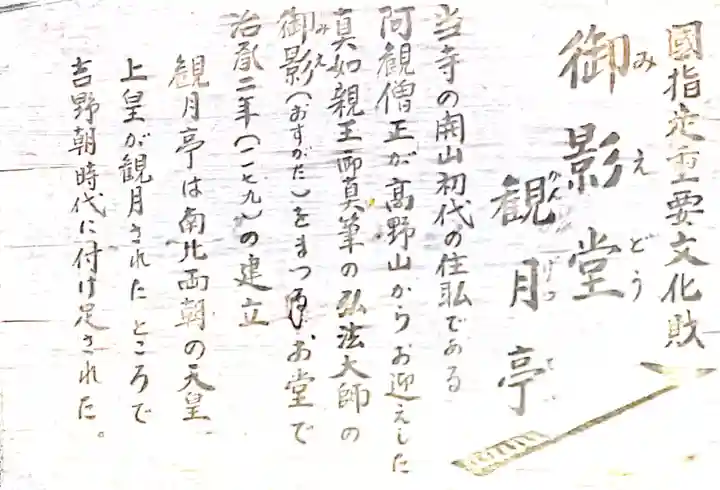 國指定重要文化財
御影堂
みえどう
観月亭
かんげつてい
当寺の開山初代の住職である
阿観僧正が高野山からお迎えした
真如親王画真筆の弘法大師の
御影(おすがた)をまつるお堂で
みえ
治承二年(一一七九)の建立
観月亭は南北両朝の天皇
上皇が観月されたところで
吉野朝時代に付け足された。